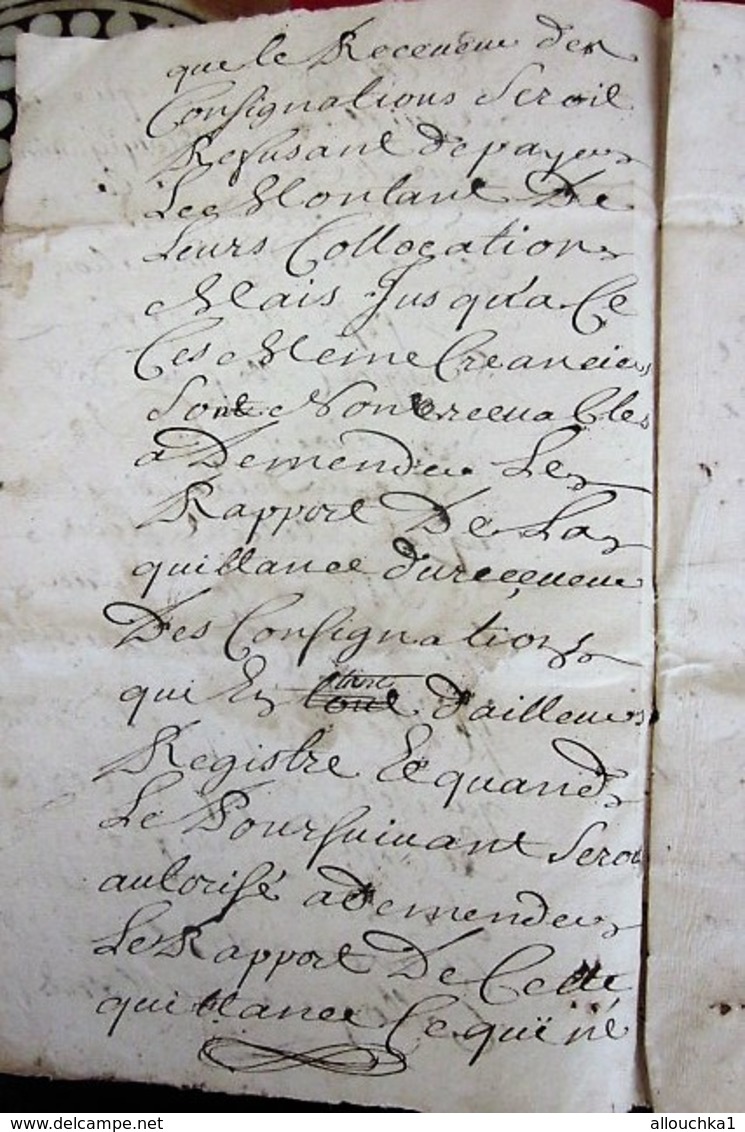 que le Receveur des
Consignations Seroit
Refusant de payer
Le Montant De
Leurs Collocations
Mais Jusqu'a Ce
Ces Meme Creanciers
Sont Non recevables
a Demender Le
Rapport De La
quittance du receveur
Des Consignations
qui En tient d'ailleurs
Registre Et quand
Le Poursuivant Seroit
autorisé a Demender
Le Rapport De Cette
quittance Ce qui n'e
delcampe.net
allouchka1